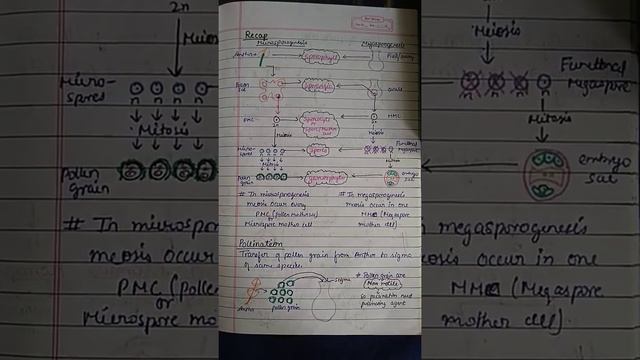 Recap
Microsporogenesis
Megasporogenesis
Anther
Sporophyll
Pistil/ovary
Pollen sac
ovule
PMC
2n
2n
MMC
Meiosis
Meiosis
Micro-spores
Spores
Functional Megaspore
Mitosis
Mitosis
Pollen grain
Gametophyte
embryo sac
# In microsporogenesis
meiosis occur every
PMC (Pollen mother cell)
or
Microspore mother cell
# In megasporogenesis
meiosis occur in one
MMC (Megaspore
mother cell)
Pollination
Transfer of pollen grain from Anther to stigma
of same species.
Anther
pollen grain
stigma
# Pollen grain are
Non motile
so pecans to need
pollinating agent
2n
Meiosis
Micro-
spores
n n n n
Mitosis
Pollen
grain
# In microspor
meiosis occur
PMC (Pollen
or
Microspore mo
Meiosis
Functional
Megaspore
n
Mitosis
embryo
sac
megasporogenesis
eiosis occur in one
MMC (Megaspore
mother cell).